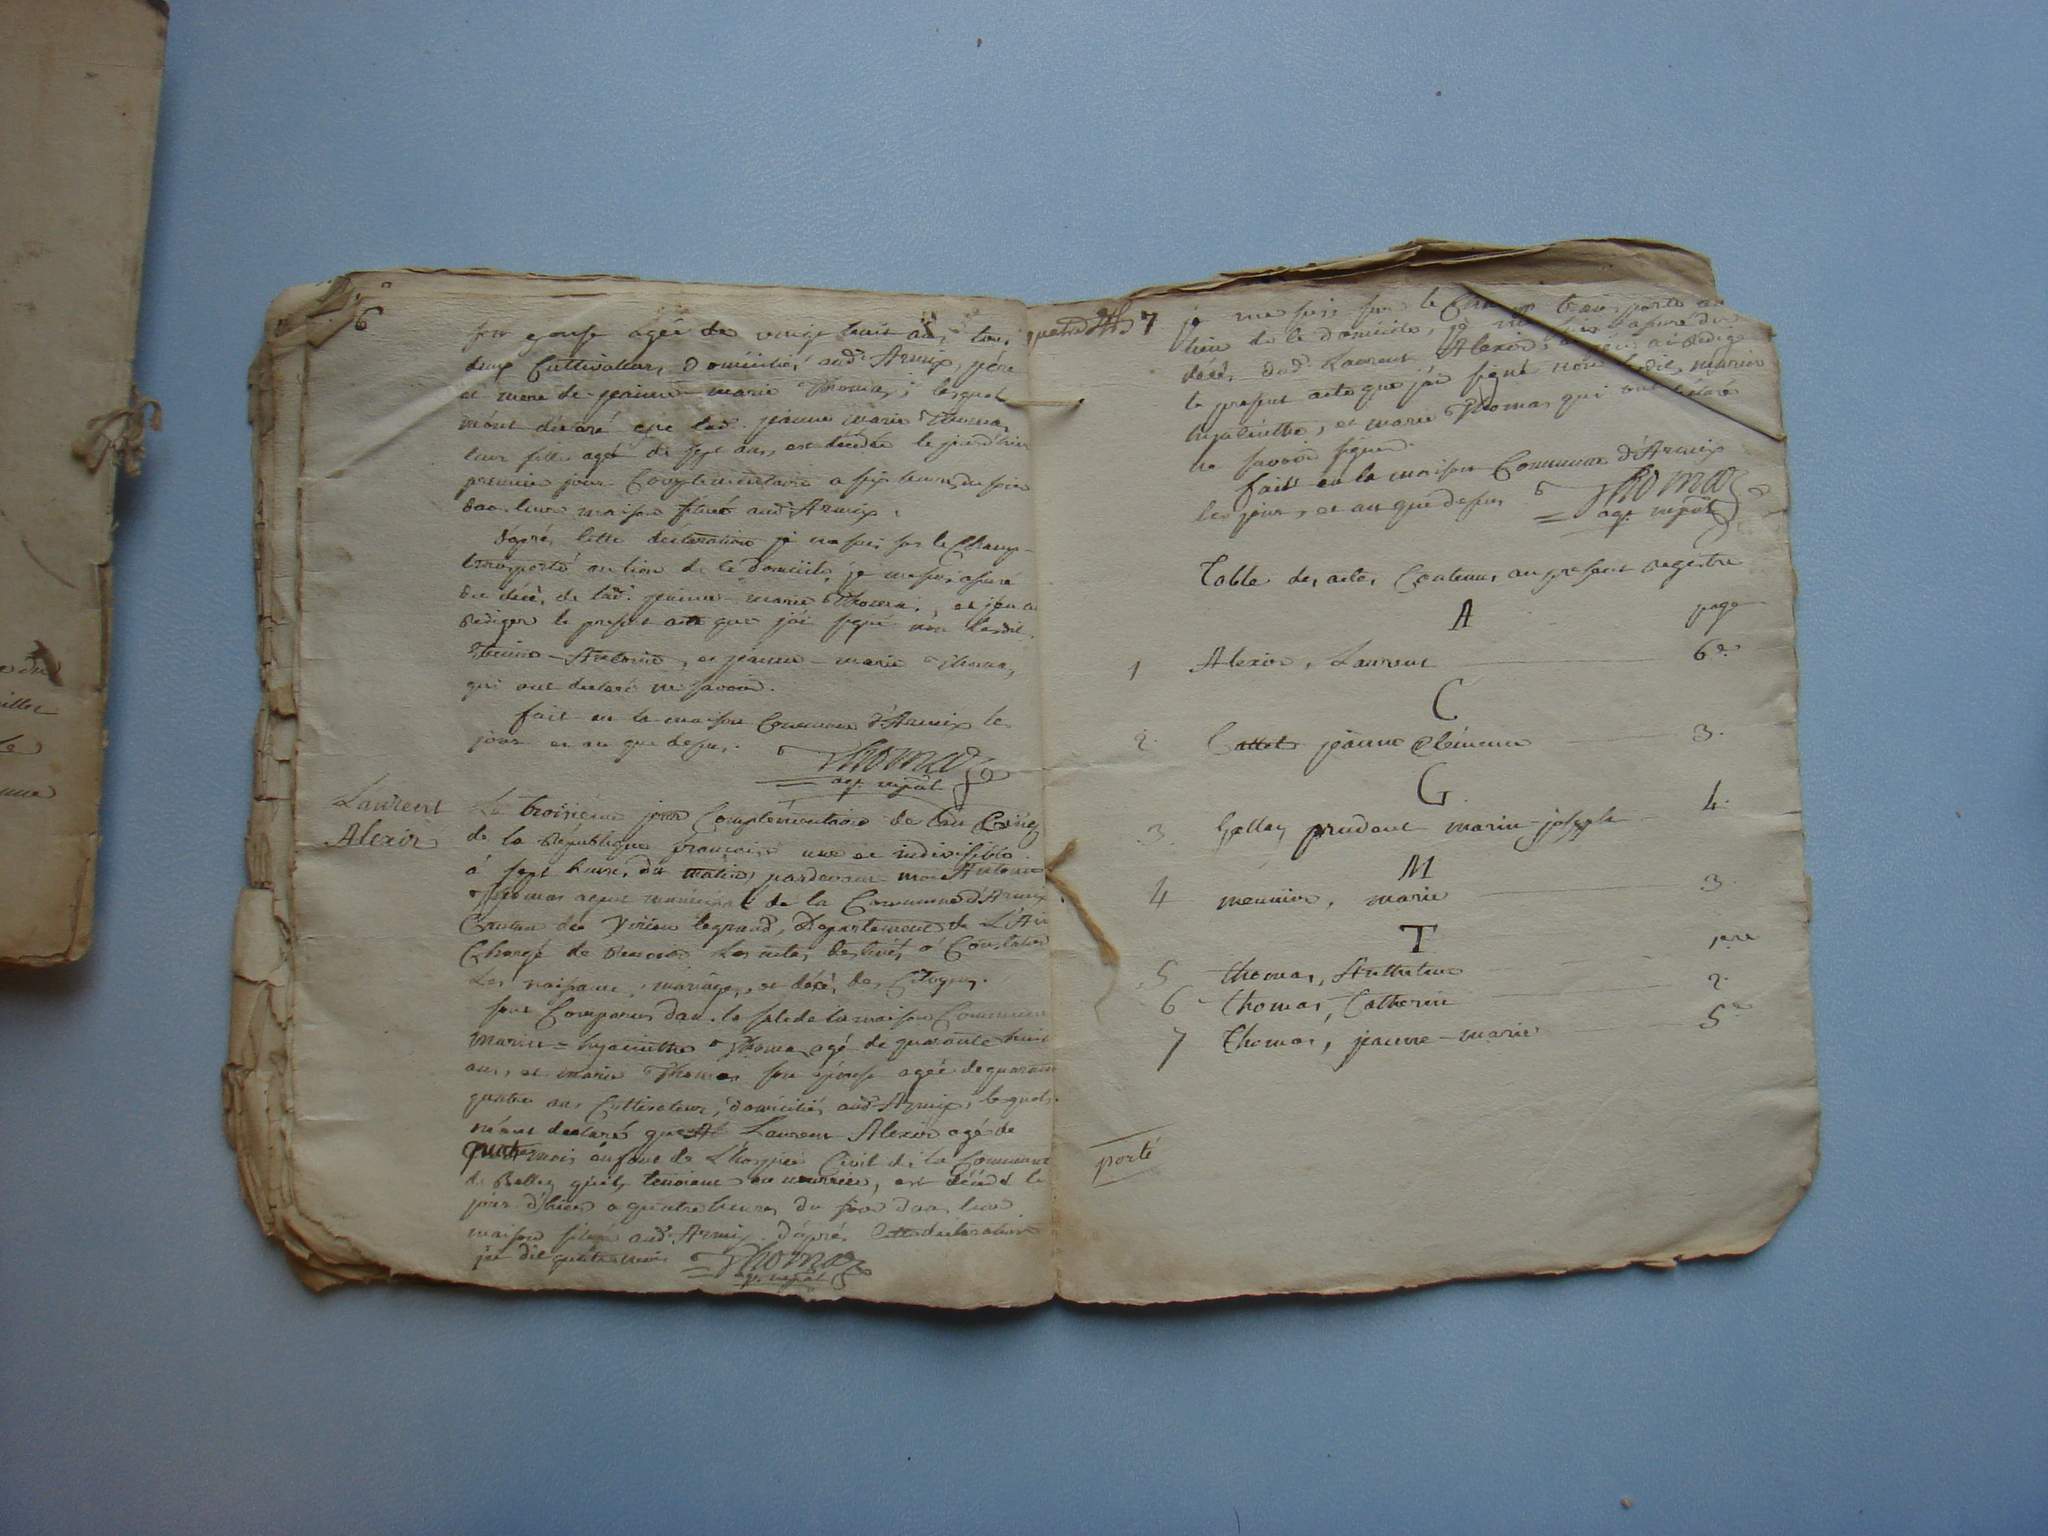 6
son epouse agée de vingt huit ans, tous
deux Cultivateurs, Domiciliés aud. Armix, père
et mere de jeanne-marie Thomas; lesquels
m'ont déclaré que lad. jeanne marie Thomas
leur fille agée de sept ans, est décédée le jour d'hier
premier jour Complémentaire a six heures du soir
dans leur maison située aud. Armix.
D'après cette déclaration je me suis sur le Champ
transporté au lieu de ce domicile, je me suis assuré
du décés de lad. jeanne-marie Thomas, et j'en ai
rédiger le present acte que j'ai signé non lesdits
Antoine, et jeanne-marie Thomas,
qui ont declaré ne savoir.
fait en la maison Commune d'Armix les
jour et an que dessus.
Thomas
agt. mpal
Laurent
Alexis
Le troisième jour Complémentaire de l'an Cinq
de la République française une et indivisible
à sept heures du matin, pardevant moi Antoine
Thomas agent municipal de la Commune d'Armix
Canton de Virieu legrand, Département de L'Ain
Chargé de recevoir les actes destinés à Constater
Les naissances, mariages, et décés des Citoyens.
sont Comparus dans la salle de la maison Commune
Marin-hyacinthe Thomas agé de quarante huit
ans, et marie Thomas son épouse agée de quarante
quatre ans Cultivateurs, domiciliés aud. Armix, lesquels
m'ont declaré que Laurent Alexis agé de
quatre mois enfant de L'hospice Civil de la Commune
de Belley qu'ils tenoient en nourrice, est décédé le
jour d'hier a quatre heures du soir dans leur
maison située aud. Armix. D'après cette déclaration
j'ai dit quatre mois
Thomas
agt. mpal
7
je me suis sur le Champ transporté au
lieu de ce domicile, je me suis assuré du
décés dud. Laurent Alexis, et j'en ai rédigé
le present acte que j'ai signé non lesdits marin
hyacinthe, et marie Thomas qui ont déclaré
ne savoir signer.
fait en la maison Commune d'Armix
les jour, et an que dessus
Thomas
agt. mpal
Table des actes Contenus au present registre
A page
1 Alexis, Laurent 6e.
C
2. Cattet jeanne Clémence 3.
G.
3. Gallay prudent marin-joseph 4.
M
4 meunier, marie 3.
T
5 thomas, Anthelme 1ere
6 thomas, Catherine 2.
7 thomas, jeanne-marie 5e
porté